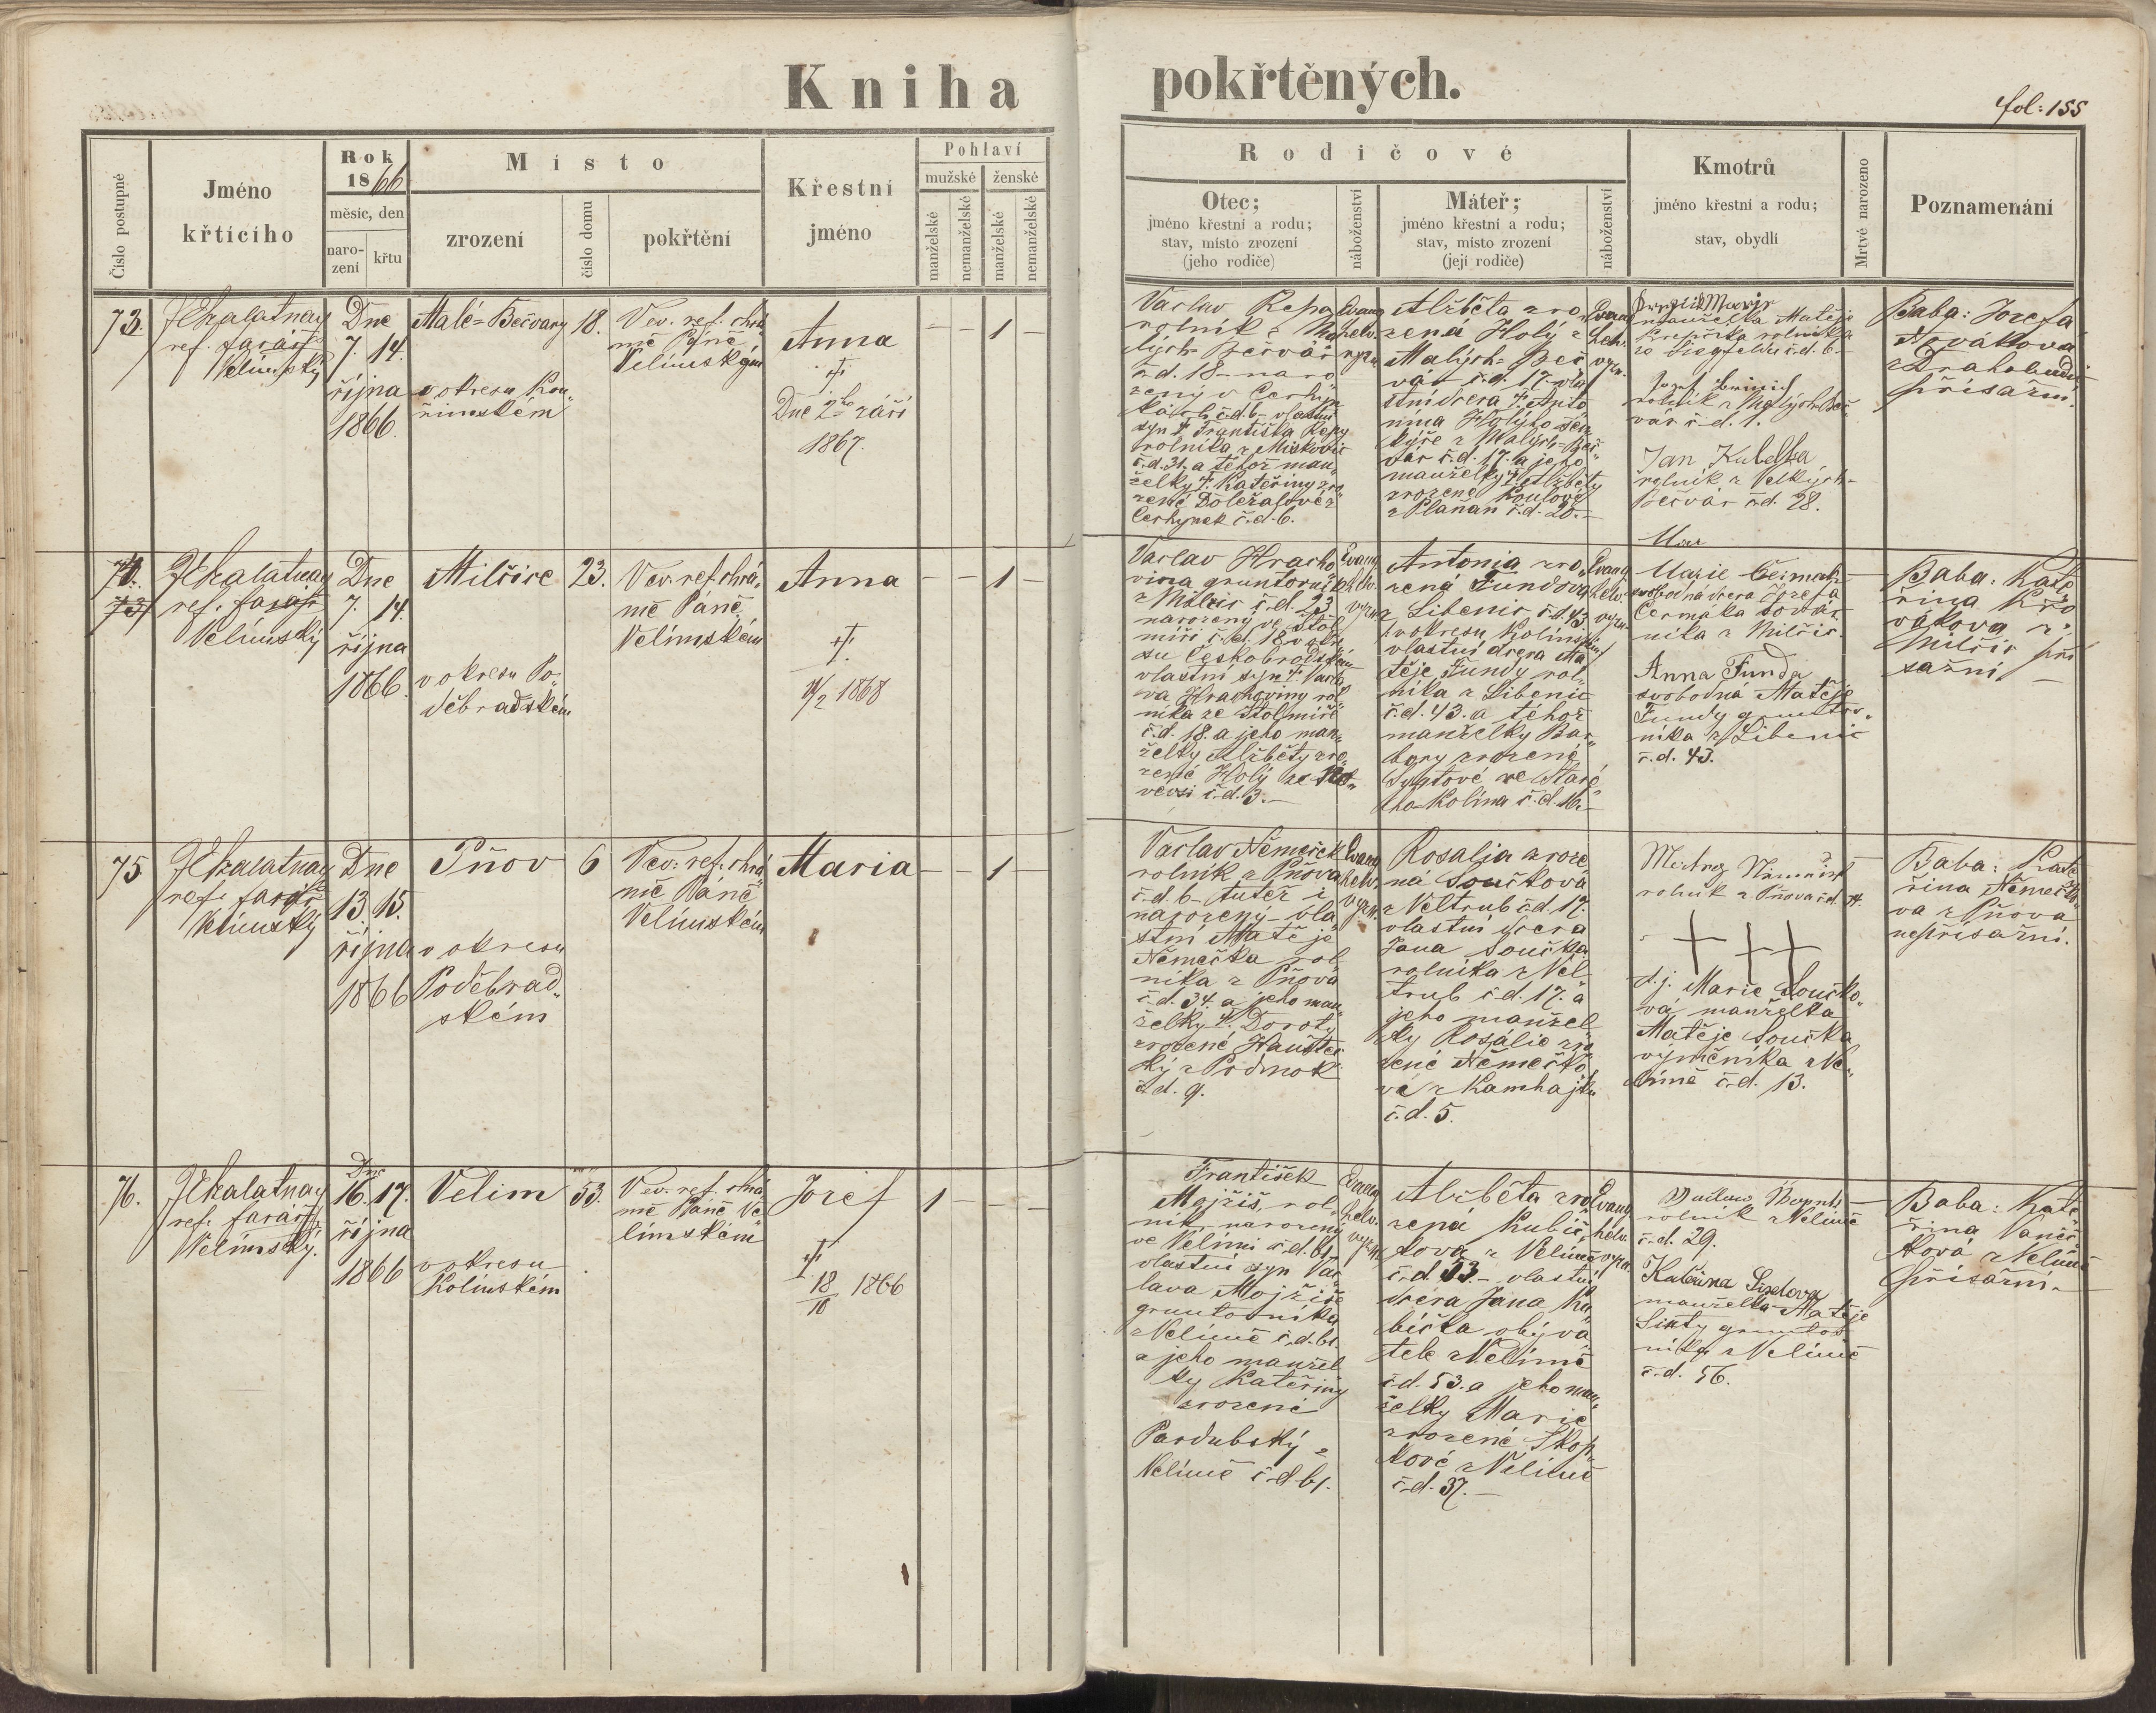 Kniha pokřtěných.
fol: 155
Číslo postupné
Jméno
křtícího
Rok
1866
měsíc, den
naro-
zení
křtu
Místo
zrození
číslo domu
pokřtění
Křestní
jméno
Pohlaví
mužské
ženské
manželské
nemanželské
manželské
nemanželské
Rodičové
Otec;
jméno křestní a rodu;
stav, místo zrození
(jeho rodiče)
náboženství
Máteř;
jméno křestní a rodu;
stav, místo zrození
(její rodiče)
náboženství
Kmotrů
jméno křestní a rodu;
stav, obydlí
Mrtvé narozeno
Poznamenání
73.
ref. farář
Velimský
Dne
7. 14.
října
1866.
Malé-Bečvary
v okresu Kou„
řimském
18.
V ev. ref. chrá„
mě Páně
Velimském
Anna
†
Dne 2ho září
1867.
– – 1 –
Vaclav Řepa
rolník z Ma
lých Bečvár
č.d. 18 – naro
zený v Cerhýn
kách č.d. 6 – vlastní
syn †. Františka Řepy
rolníka z Miškovic
č.d. 31. a téhož man„
želky †. Kateřiny zro
zené Doležalové z
Cerhynek č.d. 6.
Evang.
helv.
vyzn.
Alžběta zro„
zená Holý z
Malých Beč
vár č.d. 17. vla
stní dcera †. Anto
nína Holýho šen
kýře z Malých-Beč„
vár č.d. 17. a jeho
manželky †. Alžběty
zrozené Koutové
z Plaňan č.d. 20. –
Evang.
helv.
vyzn.
manželka Matěje
rolníka
ze Siegfeldu č.d. 6 –
Josef
rolník z Malých Beč„
vár č.d. 1.
Jan Kubelka
rolník z Velkých-
Bečvár č.d. 28.
Baba: Josefa
Novákova
z Drahobudic
přísažní.
74.
73
ref. farář
Velimský
Dne
7. 14.
října
1866.
Milčice
v okresu Po„
děbradském
23.
V ev. ref. chrá„
mě Páně
Velimském
Anna
†
11/2 1868
– – 1 –
Vaclav Hracho
vina gruntovník
z Milčic č.d. 23.
narozený ve Štol
míři č.d. 18 v okre
su Českobrodském
vlastní syn †. Vacla
va Hrachoviny rol„
níka ze Štolmíře
č.d. 18. a jeho man„
želky Alžběty zro„
zené Holý ze
vevsi č.d. 3. –
Evang.
helv.
vyzn.
Antonia zro„
zená Fundova
z Libenic č.d. 43.
v okresu Kolínském
vlastní dcera Ma
těje Fundy rol„
níka z Libenic
č.d. 43. a téhož
manželky Bar„
bory zrozené
ze Staré„
ho-Kolína č.d. 16. –
Evang.
helv.
vyzn.
Marie Čermak
svobodná dcera Jozefa
Čermáka
níka z Milčic.
Anna Funda
svobodná Matěje
Fundy gruntov„
níka z Libenic
č.d. 43.
Baba: Kate
řina Křo
vákova z
Milčic pří
sažní –
75
ref. farář
Velimský
Dne
13. 15.
října
1866
Pňov
v okresu
Poděbrad„
ském
6
V ev. ref. chrá„
mě Páně
Velimském
Maria
– – 1 –
Vaclav Němeček
rolník z Pňova
č.d. 6 – tutéž i
narozený – vla
stní Matěje
Němečka rol
níka z Pňova
č.d. 34. a jeho man„
želky †. Doroty
zrozené
ký z Podmok
č.d. 9.
Evang.
helv.
vyzn.
Rosalia zroze
ná Součkova
z Veltrub č.d. 17.
vlastní dcera
Jana Součka
rolníka z Vel
trub č.d. 17. a
jeho manžel
ky Rosálie zro
zené Němečko
vé z Kamhajku
č.d. 5.
rolník z Pňova č.d.
+ + +
t.j. Marie Součko„
vá manželka
Matěje Součka
výměnika z Ve„
limě č.d. 13.
Baba: Kate
řina Němečko„
va z Pňova
nepřísažní.
76.
ref. farář
Velimský.
Dne
16. 17.
října
1866
Velim
v okresu
Kolínském
53.
V ev. ref. chrá„
mě Páně Ve
limském
Jozef
†
18/10 1866
1 – – –
František
Mojžiš, rol„
ník, narozený
ve Velimi č.d. 61
vlastní syn Vác
lava Mojžiše
gruntovníka
z Velimě č.d. 61.
a jeho manžel
ky Kateřiny
zrozené
Pardubský z
Velimě č.d. 61.
Evang.
helv.
vyzn.
Alžběta zro
zená Kubíč„
kova z Velimě
č.d. 53. – vlastní
dcera Jana Ku
bíčka obýva
tele z Velimě
č.d. 53. a jeho man„
želky Marie
zrozené Skop„
kové z Velimě
č.d. 37. –
Evang.
helv.
vyzn.
rolník z Velimě
č.d. 29.
Kateřina Sixtova
manželka Matěje
Sixty gruntov
níka z Velimě
č.d. 56.
Baba: Kate„
řina Vaněč„
kova z Velimě
přísažní. –